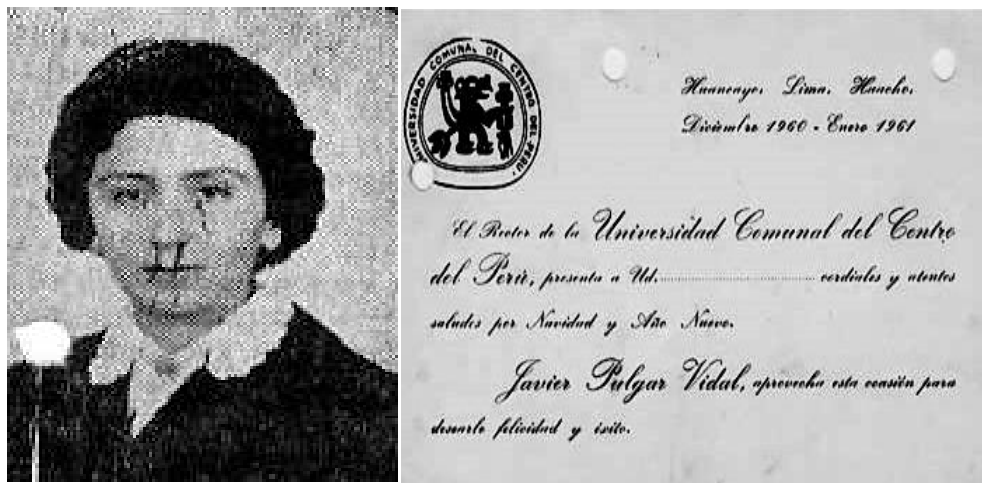 UNIVERSIDAD COMUNAL DEL CENTRO DEL PERU.
Huancayo. Lima. Huacho.
Diciembre 1960 - Enero 1961
El Rector de la Universidad Comunal del Centro
del Perú, presenta a Ud. cordiales y atentos
saludos por Navidad y Año Nuevo.
Javier Pulgar Vidal, aprovecha esta ocasión para
desearle felicidad y éxito.